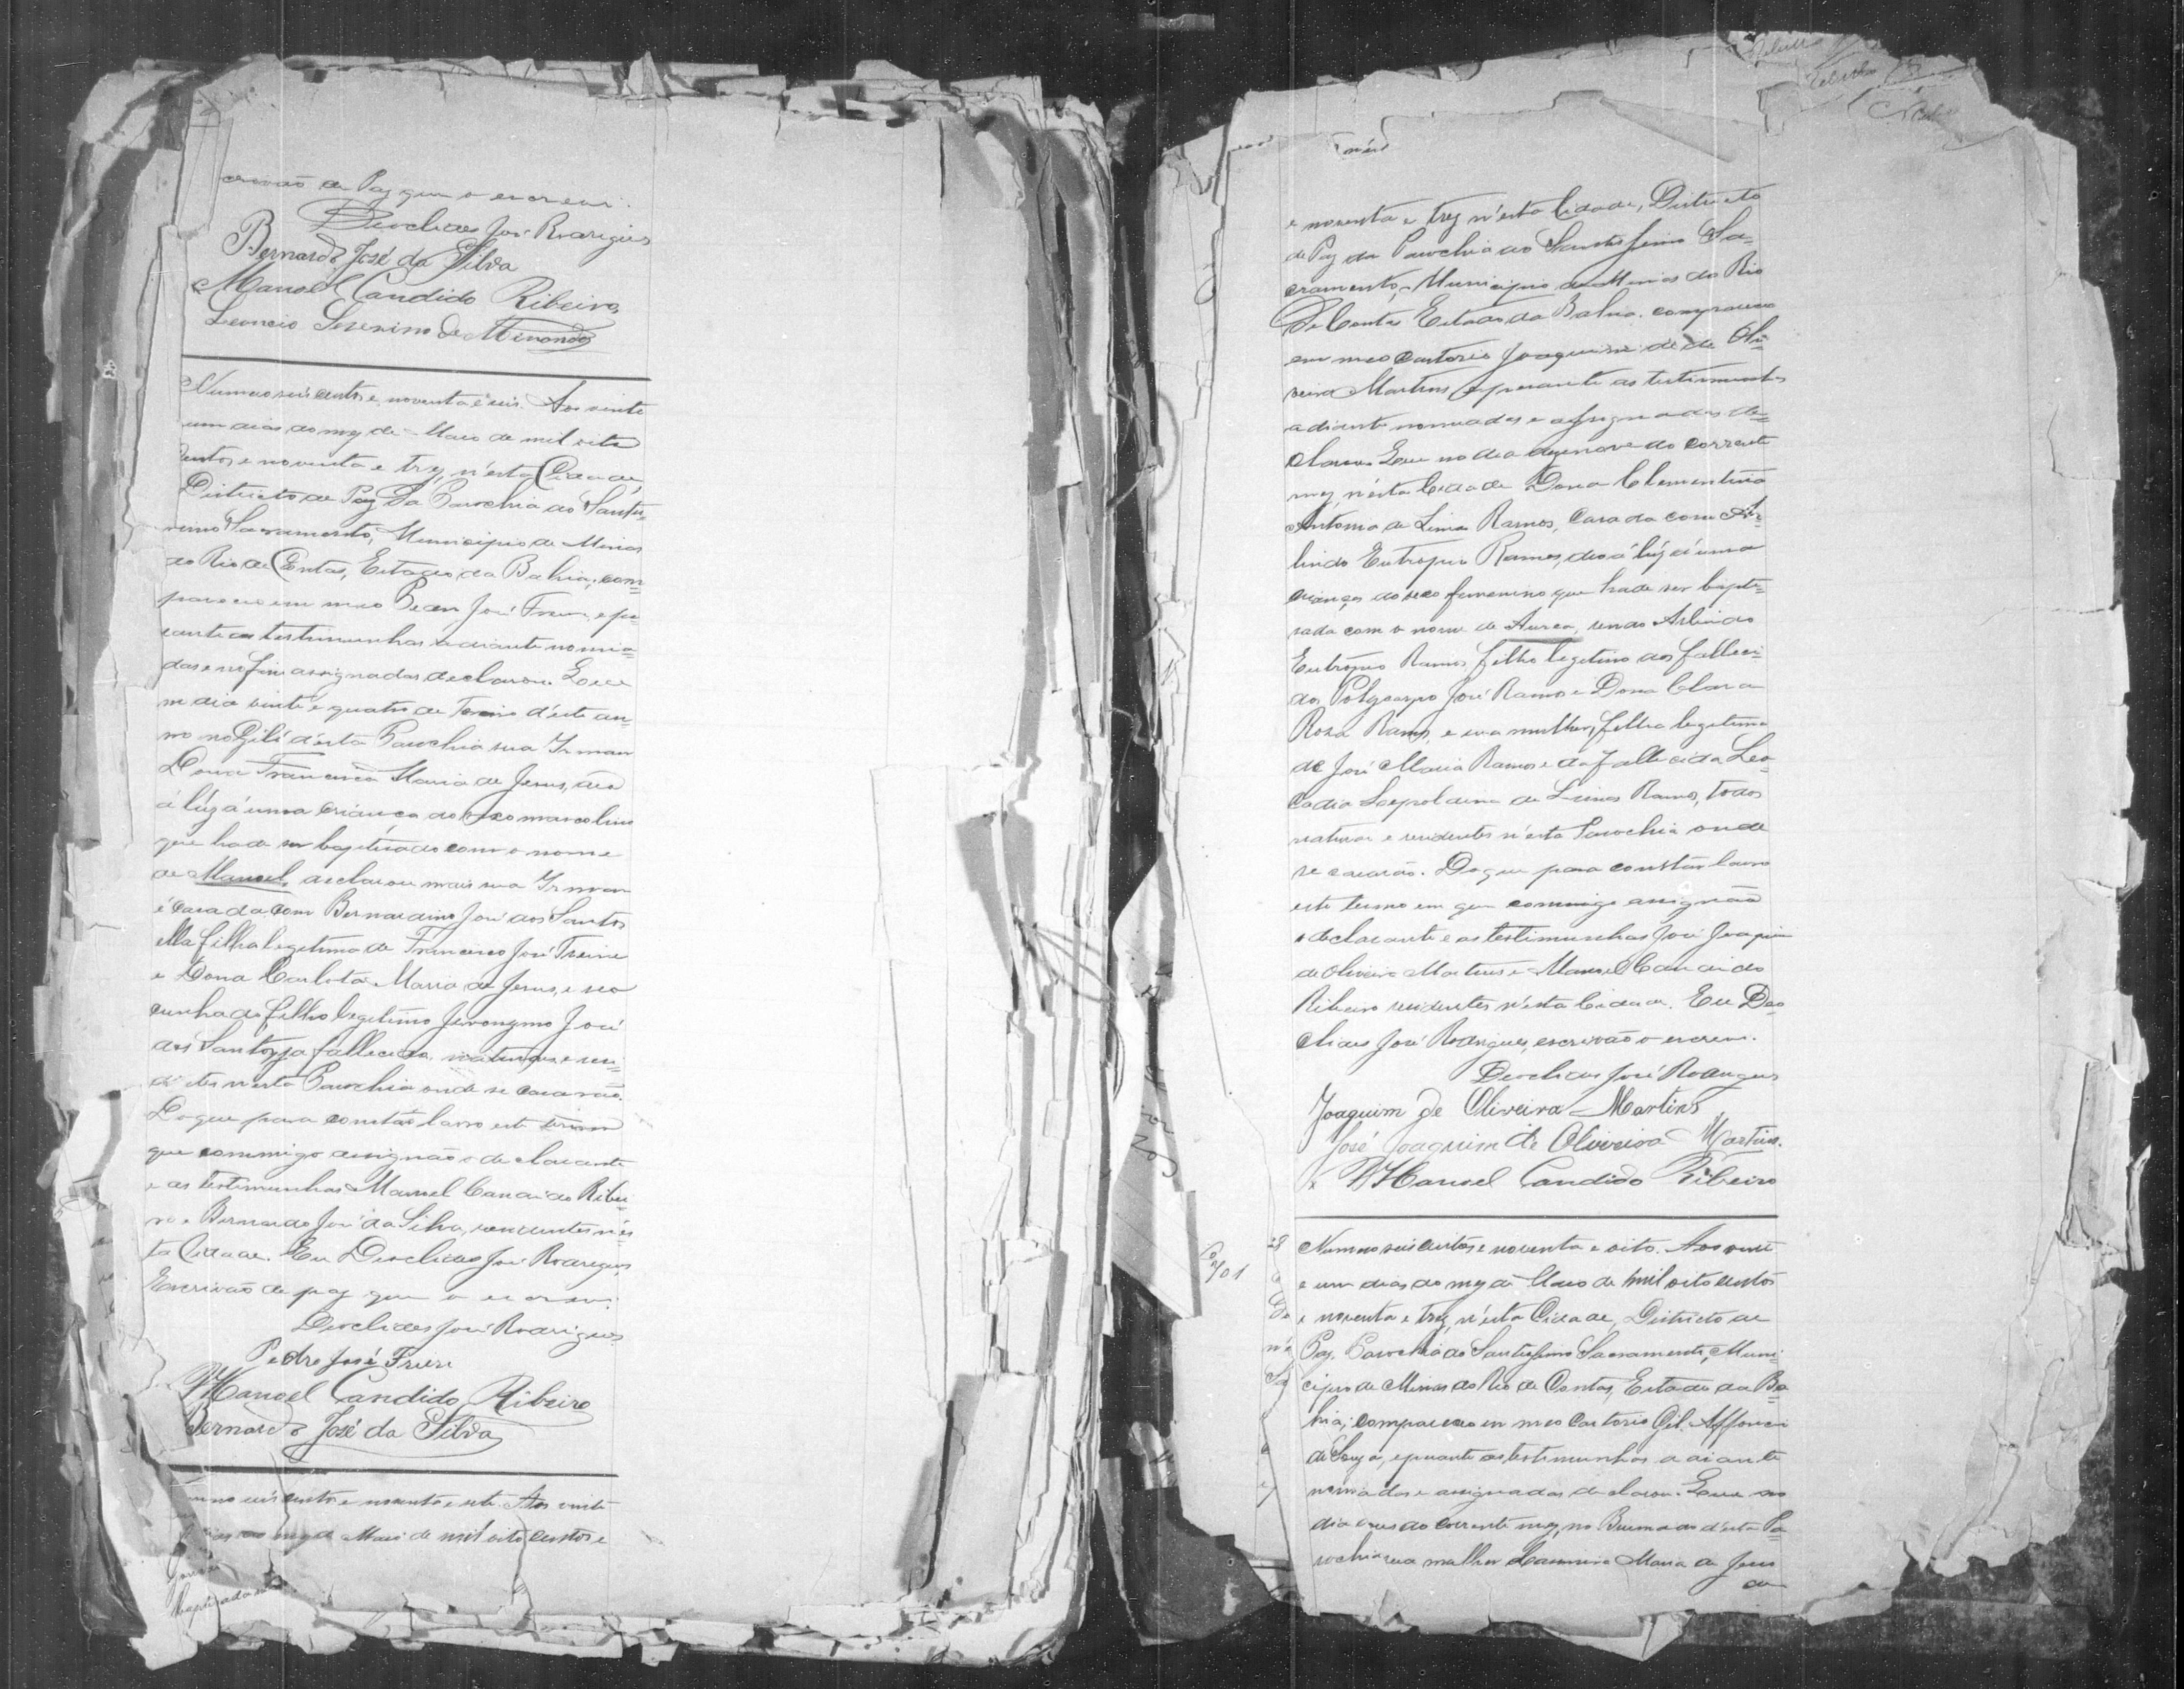 crivão de Paz que o escrevi.
Deoclides José Rodrigues
Bernardo José da Silva
Manoel Candido Ribeiro
Leoncio Severino de Miranda
Numero seis centos e noventa e seis. Aos vinte
um dias do mez de Maio de mil oito
centos e noventa e trez, n'esta Cidade,
Districto de Paz da Parochia do Santis-
simo Sacramento, Municipio de Minas
do Rio de Contas, Estado da Bahia, com=
pareceo em meo José Freire, e pe
rante as testimunhas adiante nomia=
das e no fim assignadas declarou. Que
no dia vinte e quatro de d'este an=
no no Gili d'esta Parochia sua Irman
Dona Francisca Maria de Jesus, deo
á lúz á uma criança do sexo masculino
que hade ser baptisado com o nome
de Manoel, declarou mais sua Irman
é casada com Bernardino José dos Santos
ella filha legitima de Francisco José Freire
e Dona Carlota Maria de Jesus, e seo
cunhado filho legitimo Jeronymo José
dos Santos ja fallecido, naturaes e resi=
dentes n'esta Parochia onde se casarão.
Do que para constar lavro este termo
que commigo assignão o declarante
e as testimunhas Manoel Candido Ribei
ro e Bernardo José da Silva, residentes n'es
ta Cidade. Eu Deoclides José Rodrigues,
Escrivão de paz que o escrevi.
Deoclides José Rodrigues
Pedro José Freire
Manoel Candido Ribeiro
Bernardo José da Silva
seis centos e noventa e sete. Aos vinte
mez de Maio de mil oito centos e
baptizado
e noventa e trez n'esta Cidade, Districto
de Paz da Parochia do Santissimo Sa=
cramento, Municipio de Minas do Rio
de Contas Estado da Bahia. compareceo
em meo Cartorio Joaquim de Oli=
veira Martins e perante as testimunhas
adiante nomeadas e assignadas de=
clarou. Que no dia dezenove do corrente
mez, n'esta Cidade Dona Clementina
Antonia de Lima Ramos, casada com Ar=
lindo Eutropio Ramos, deo á lúz á uma
criança do sexo femenino que hade ser bapti=
sada com o nome de Aurea, sendo Arlindo
Eutropio Ramos filho legitimo dos falleci=
dos Polycarpo José Ramos e Dona Clara
Rosa Ramos, e sua mulher, filha legitima
de José Maria Ramos e da fallecida Leo=
cadia Leopoldina de Lima Ramos, todos
naturaes e residentes n'esta Parochia onde
se casarão. Do que para constar lavro
este termo em que commigo assignão
o declarante e as testimunhas José Joaquim
de Oliveira Martins e Manoel Candido
Ribeiro residentes n'esta Cidade. Eu Deo=
clides José Rodrigues, escrivão o escrevi.
Deoclides José Rodrigues
Joaquim de Oliveira Martins
José Joaquim de Oliveira Martins.
Manoel Candido Ribeiro
Numero seis centos e noventa e oito. Aos vinte
e um dias do mez de Maio de mil oito centos
e noventa e trez, n'esta Cidade, Districto de
Paz. Parochia do Santissimo Sacramento, Muni=
cipio de Minas do Rio de Contas, Estado da Ba=
hia, compareceo em meo Cartorio Gil Affonso
de Souza, e perante as testimunhas adiante
nomiadas e assignadas declarou. Que no
dia do corrente mez, no Brumado d'esta Pa=
rochia sua mulher Maria de Jesus